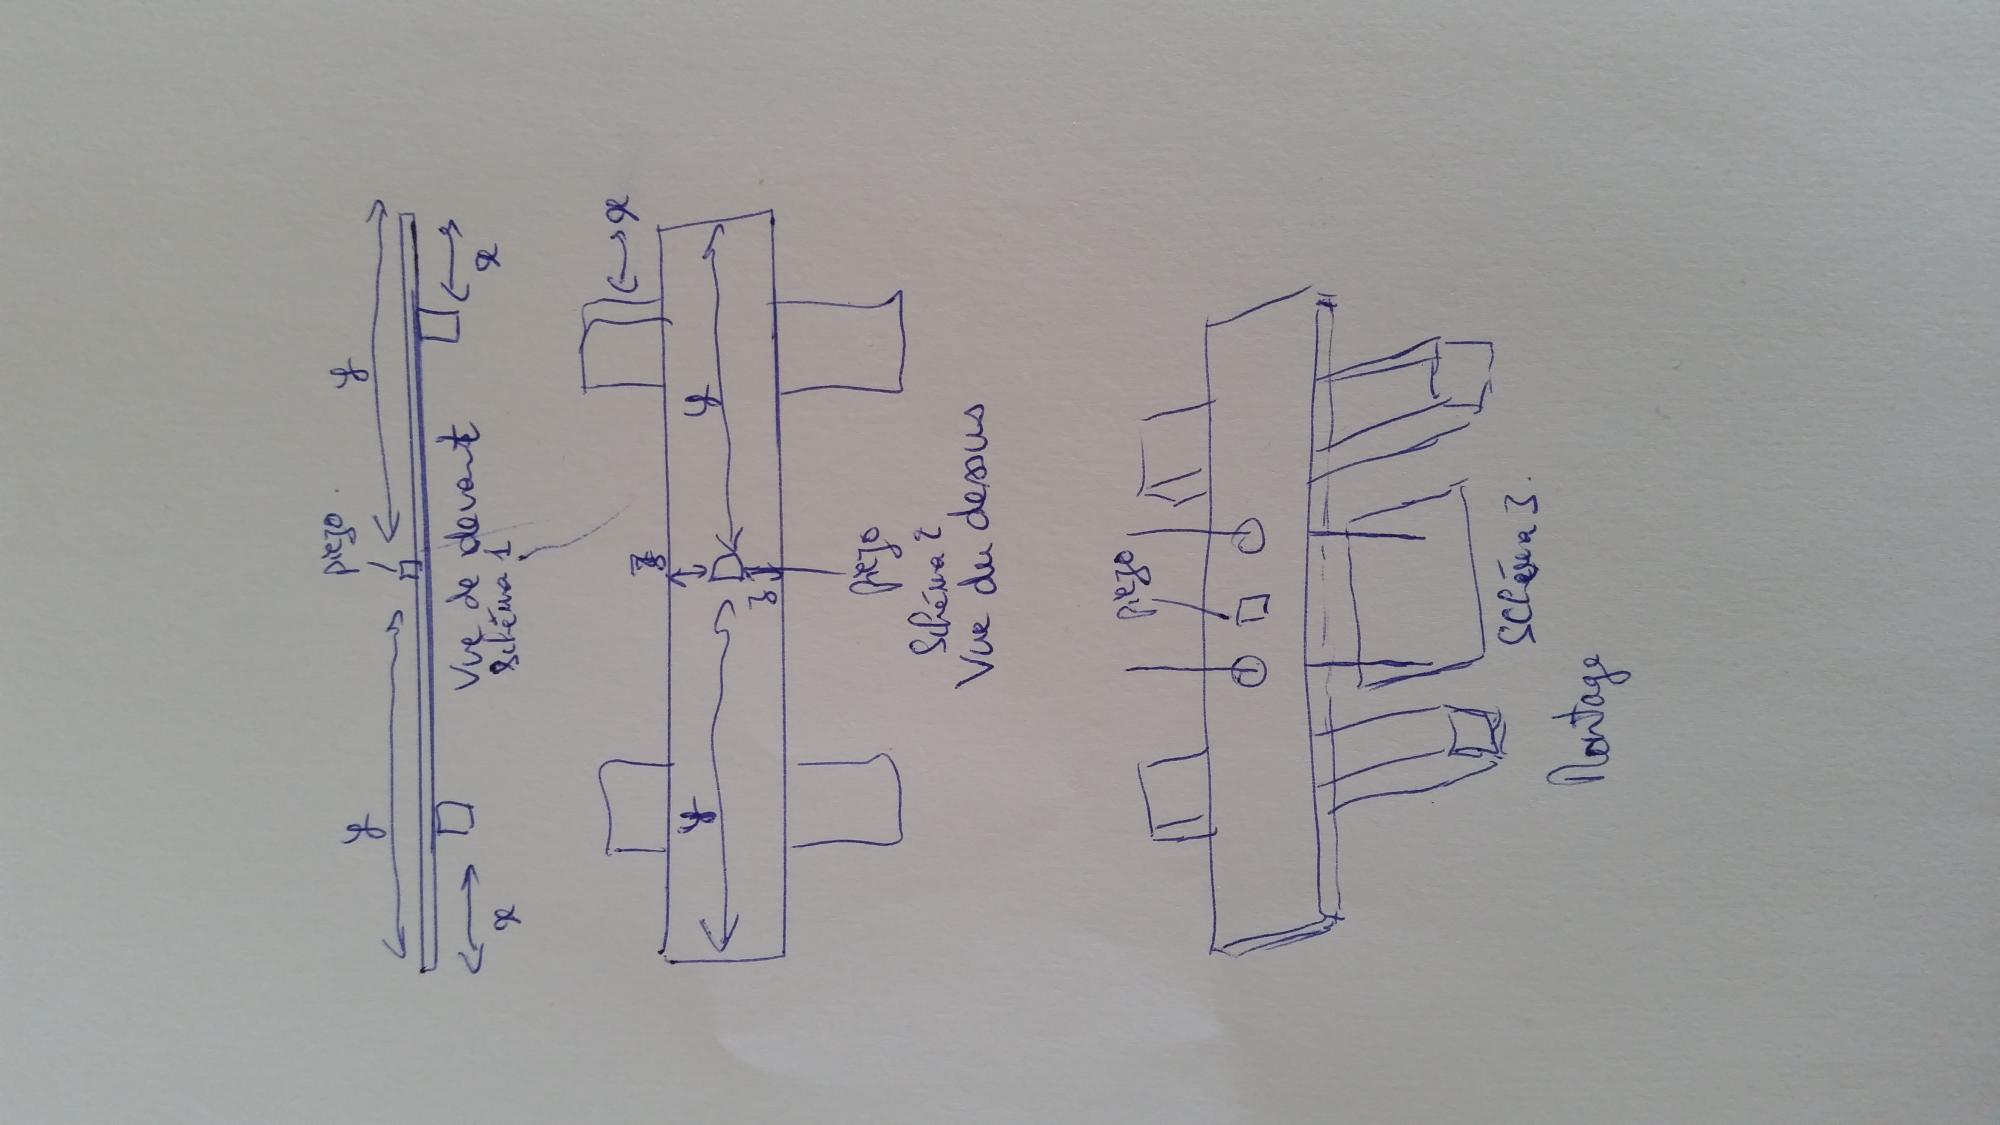 y
y
piezo.
x
x
Vue de devant
Schéma 1
x
y
y
z
z
piezo
Schéma 2
Vue du dessus
piezo
Schéma 3.
Montage